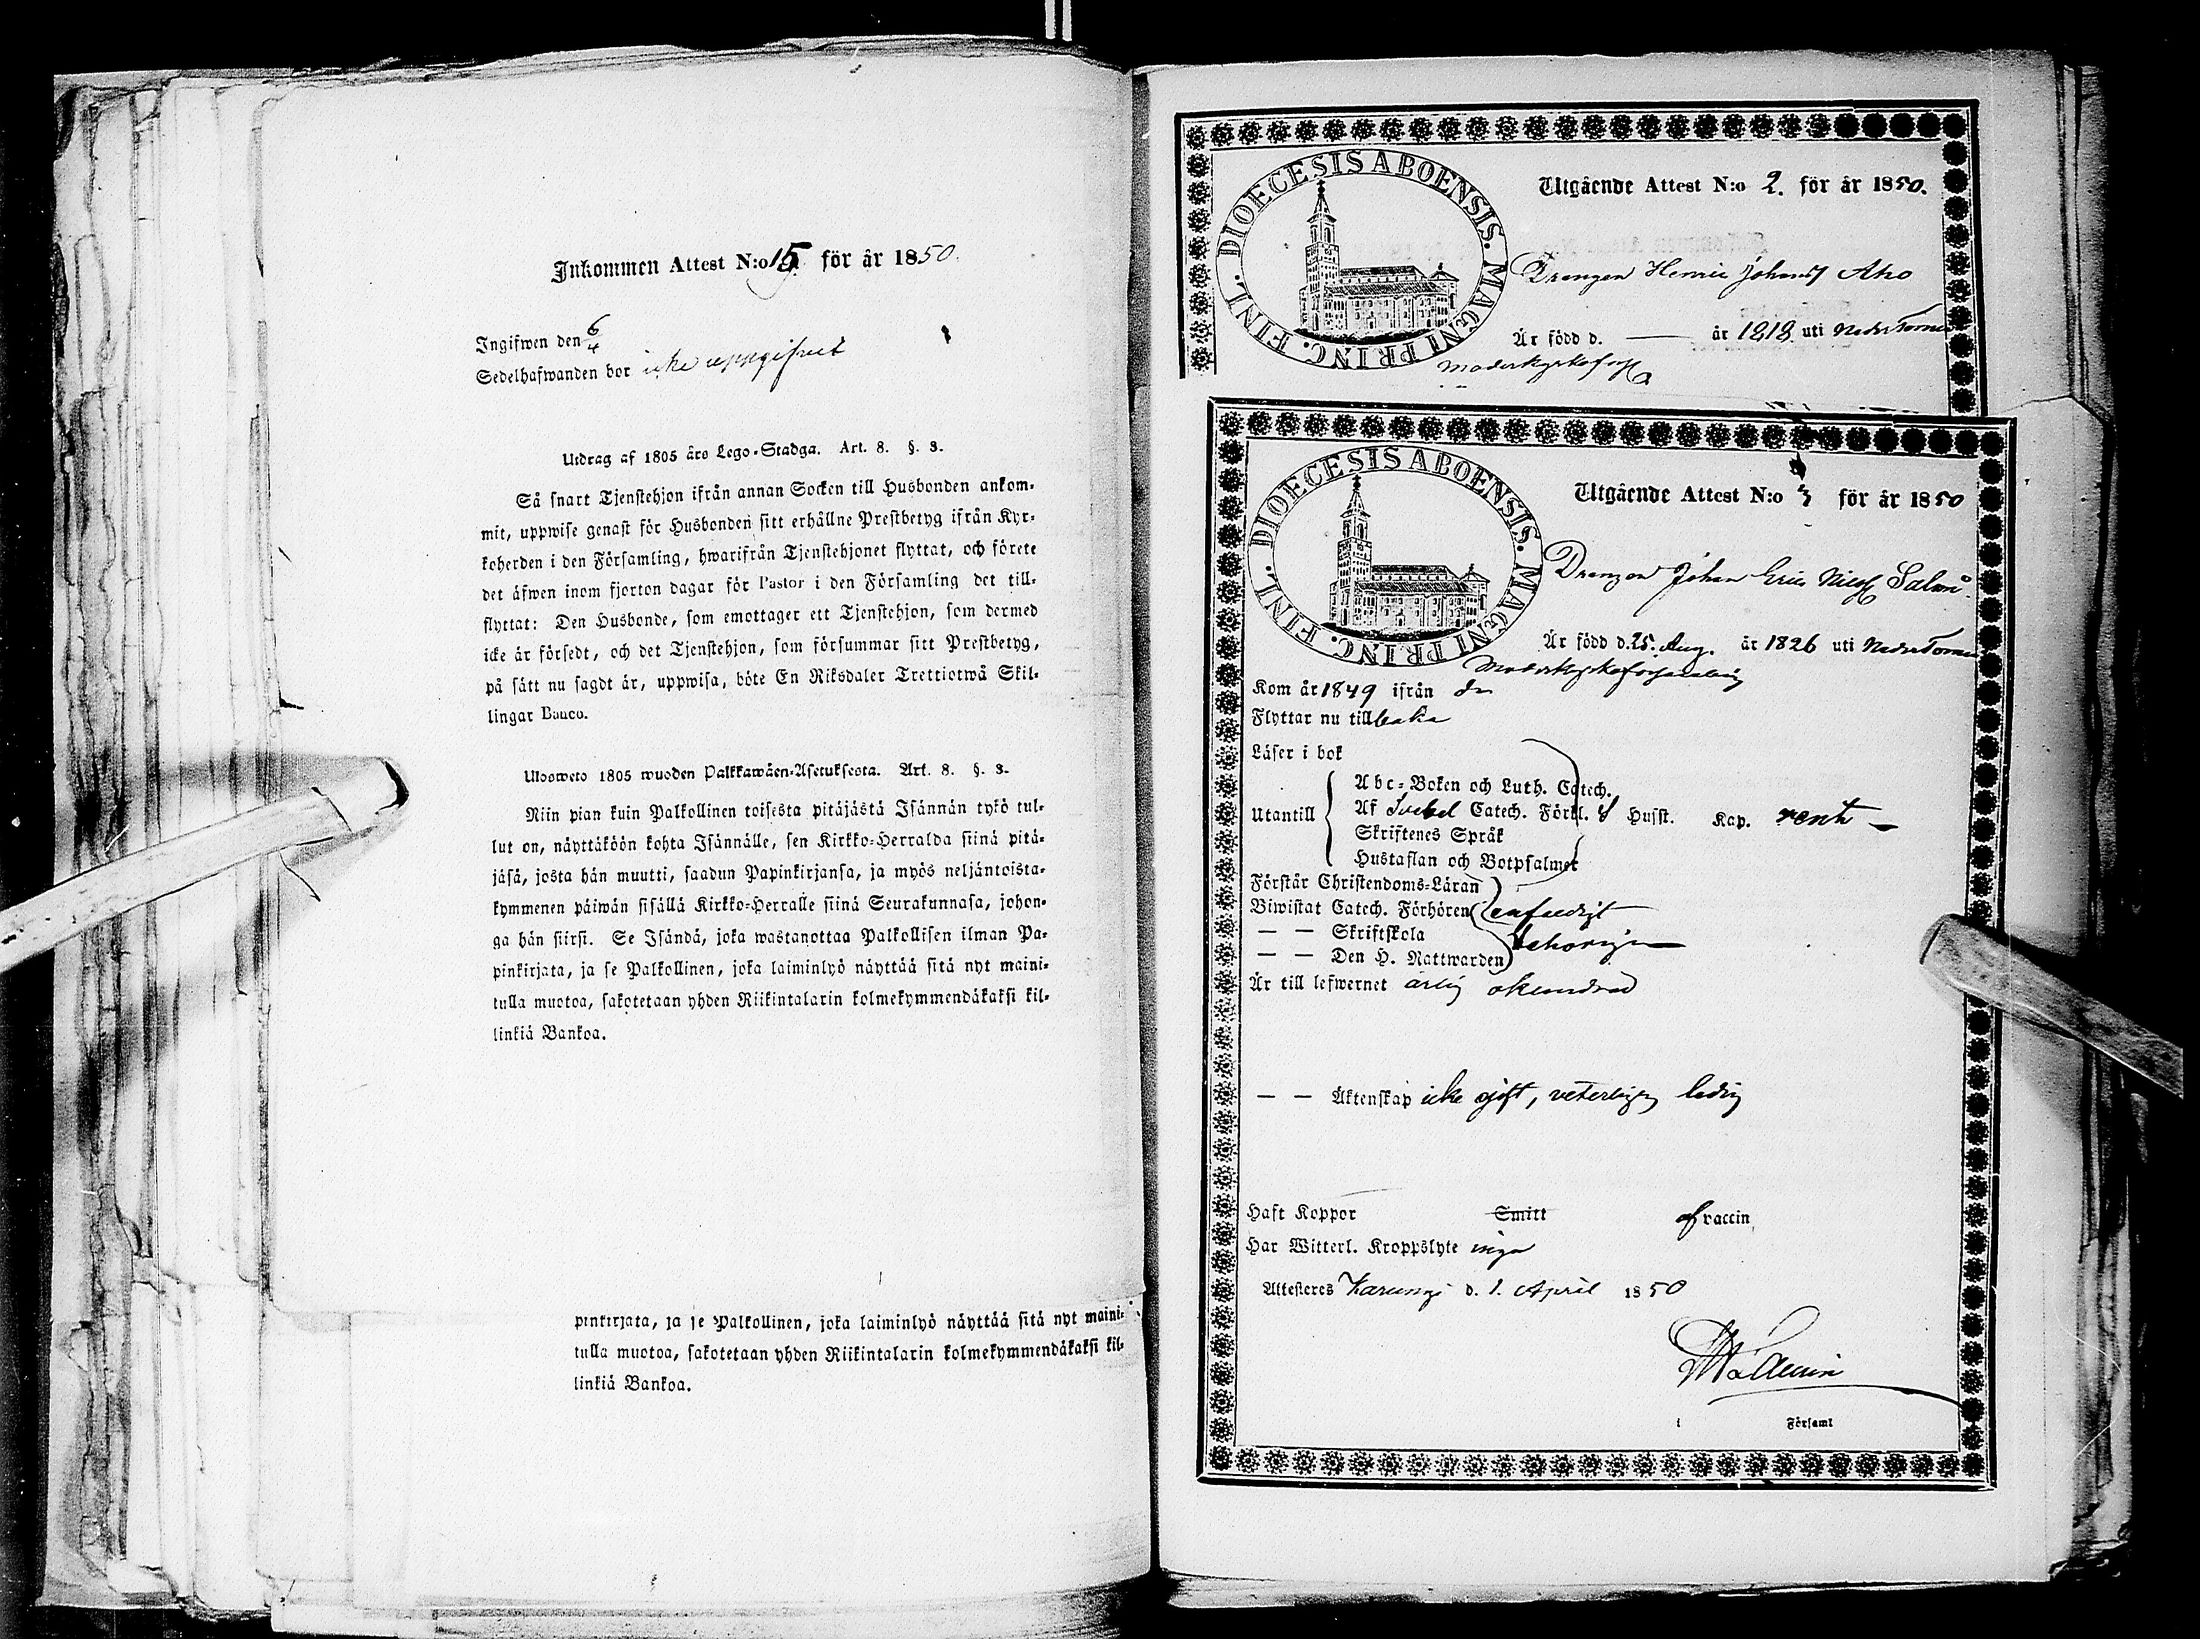 Inkommen Attest N:o 15 för år 1850.
Ingifwen den 6/4
Sedelhafwanden bor icke uppgifvet
Utdrag af 1805 års Lego-Stadga. Art. 8. §. 3.
Så snart Tjenstehjon ifrån annan Socken till Husbonden ankom-
mit, uppwise genast för Husbonden sitt erhållne Prestbetyg ifrån Kyr-
koherden i den Församling, hwarifrån Tjenstehjonet flyttat, och förete
det äfwen inom fjorton dagar för Pastor i den Församling det till-
flyttat: Den Husbonde, som emottager ett Tjenstehjon, som dermed
icke är försedt, och det Tjenstehjon, som försummar sitt Prestbetyg,
på sätt nu sagdt är, uppwisa, böte En Riksdaler Trettiotwå Skil-
lingar Banco.
Ulosweto 1805 wuoden Palkkawäen-Asetuksesta. Art. 8. §. 3.
Niin pian kuin Palkollinen toisesta pitäjästä Isännän tykö tul-
lut on, näyttäköön kohta Isännälle, sen Kirkko-Herralda siinä pitä-
jäsä, josta hän muutti, saadun Papinkirjansa, ja myös neljäntoista-
kymmenen päiwän sisällä Kirkko-Herralle siinä Seurakunnasa, johon-
ga hän siirsi. Se Isändä, joka wastanottaa Palkollisen ilman Pa-
pinkirjata, ja se Palkollinen, joka laiminlyö näyttää sitä nyt maini-
tulla muotoa, sakotetaan yhden Riikintalarin kolmekymmendäkaksi kil-
linkiä Bankoa.
pinkirjata, ja se Palkollinen, joka laiminlyö näyttää sitä nyt maini-
tulla muotoa, sakotetaan yhden Riikintalarin kolmekymmendäkaksi kil-
linkiä Bankoa.
DIOECESIS ABOENSIS. MAGNI PRINC. FINL.
Utgående Attest N:o 2. för år 1850.
Drengen Henric Johanss Aho
Är född d. — år 1818 uti Neder Torneå
Moderkyrkoförs
DIOECESIS ABOENSIS. MAGNI PRINC. FINL.
Utgående Attest N:o 3 för år 1850
Drengen Johan Eric Nilss Salmi
Är född d. 25. Aug. år 1826 uti Neder Torneå
Moderkyrkoförsamling
Kom år 1849 ifrån dn
Flyttar nu tillbaka
Läser i bok
Abc-Boken och Luth. Catech.
Utantill Af Svebel Catech. Förkl. & Husst. Kap. rent
Skriftenes Språk
Hustaflan och Botpsalmer
Förstår Christendoms-Läran
Biwistat Catech. Förhören
— — Skriftskola behörigen
— — Den H. Nattwarden
Är till lefwernet ärlig oklandrad
— — Äktenskap icke gift, veterligen ledig
Haft Koppor Smitt af vaccin
Har Witterl. Kroppslyte inga
Attesteres Karungi d. 1. April 1850
i Församl